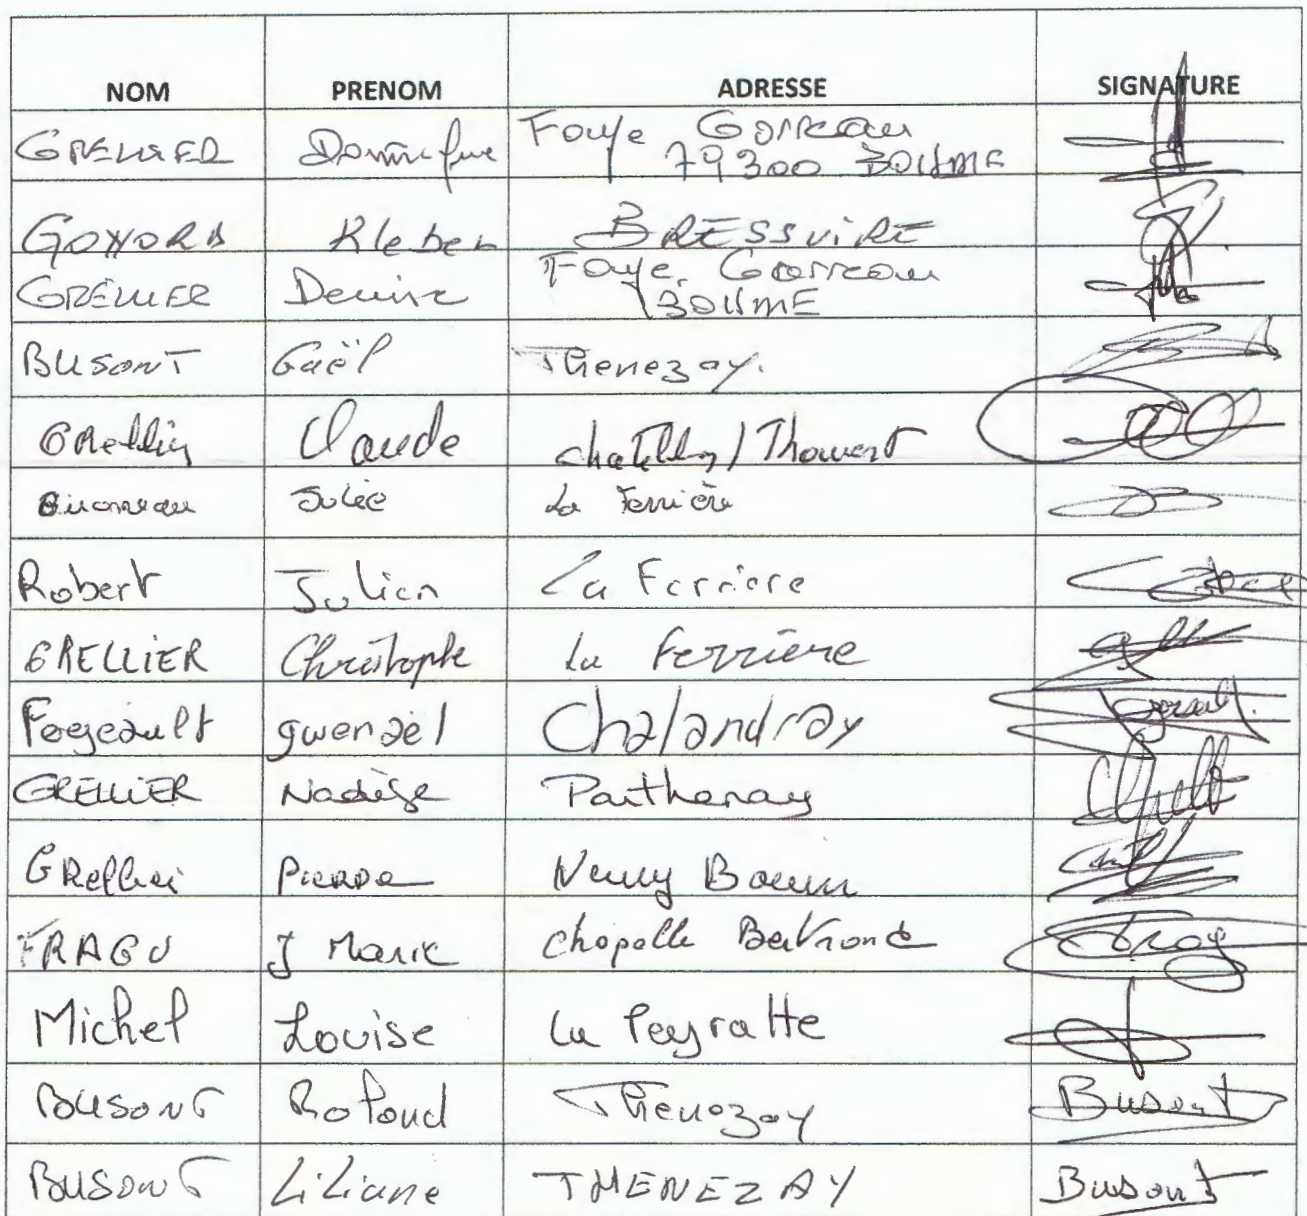 NOM PRENOM ADRESSE SIGNATURE
GRELLIER Dominique Faye Gorreau
79300 BOUSME
GOHORD Kleber BRESSUIRE
GRELLIER Denise Faye Gorreau
BOUSME
BUSONT Gaël Thenezay.
GRellier Claude chatillon / Thouert
Julie La Ferrière
Robert Julien La Ferriere
GRELLIER Christophe La Ferrière
Fogeault gwenaël Chalandray
GRELLIER Nadège Parthenay
GRellier Pierre Neuvy Bouin
FRAGU J Marie chapelle Bertrand
Michel Louise La Peyratte
BUSONT Roland Thenezay Busont
BUSONT Liliane THENEZAY Busont